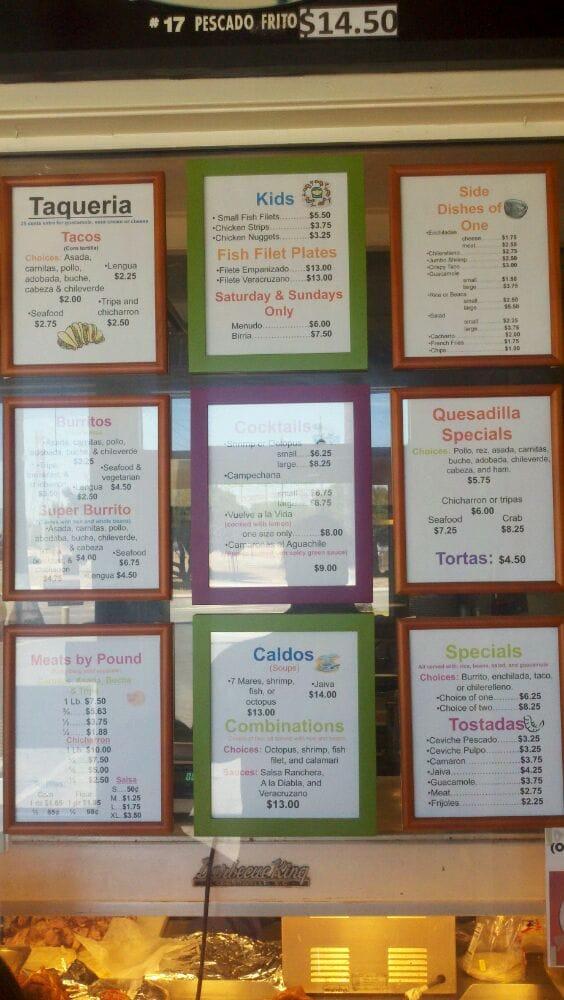 #17 PESCADO FRITO $14.50
Taqueria
25 cents extra for guacamole, sour cream or cheese
Tacos
(Corn tortilla)
Choices: Asada,
carnitas, pollo,
adobada, buche,
cabeza & chileverde
$2.00
•Lengua
$2.25
•Seafood
$2.75
•Tripa and
chicharron
$2.50
Kids
• Small Fish Filets.......... $5.50
•Chicken Strips............. $3.75
•Chicken Nuggets......... $3.25
Fish Filet Plates
•Filete Empanizado .....$13.00
•Filete Veracruzano .....$13.00
Saturday & Sundays
Only
Menudo............... $6.00
Birria.................... $7.50
Side
Dishes of
One
•Enchiladas
cheese.......... $1.75
meat............. $2.50
•Chilerelleno............ $2.75
•Jumbo Shrimp......... $2.50
•Crispy Taco............ $3.00
•Guacamole
small............ $1.50
large............. $3.75
•Rice or Beans
small............ $2.50
large............. $5.50
•Salad
small............ $2.25
large............. $3.75
•Cachetio................ $2.00
•French Fries........... $1.75
•Chips..................... $1.00
Burritos
•Asada, carnitas, pollo,
adobada, buche, & chileverde
$3.25
•Tripa,
•Seafood &
vegetarian
•Lengua $4.50
$3.50
Super Burrito
•Asada, carnitas, pollo,
adobada, buche, chileverde,
& cabeza
$4.00
•Seafood
$6.75
$4.75
Lengua $4.50
Cocktails
•Shrimp or Octopus
small.... $6.25
large.... $8.25
•Campechana
small.... $6.75
large.... $8.75
•Vuelve a la Vida
(cooked with lemon)
one size only....... $8.00
•Camarones al Aguachile
$9.00
Quesadilla
Specials
Choices: Pollo, rez, asada, carnitas,
buche, adobada, chileverde,
cabeza, and ham.
$5.75
Chicharron or tripas
$6.00
Seafood
$7.25
Crab
$8.25
Tortas: $4.50
Meats by Pound
Carnitas, Asada, Buche
& Tripa
1 Lb. $7.50
¾...... $5.63
½...... $3.75
¼...... $1.88
Chicharron
1 Lb. $10.00
¾...... $7.50
½...... $5.00
¼...... $2.50
Salsa
S.... 50¢
M.. $1.25
L... $1.75
XL. $3.50
Corn
Flour
½ 98¢
Caldos
(Soups)
•7 Mares, shrimp,
fish, or
octopus
$13.00
•Jaiva
$14.00
Combinations
Choices: Octopus, shrimp, fish
filet, and calamari
Sauces: Salsa Ranchera,
A la Diabla, and
Veracruzano
$13.00
Specials
All served with: rice, beans, salad, and guacamole
Choices: Burrito, enchilada, taco,
or chilerelleno.
•Choice of one.......... $6.25
•Choice of two.......... $8.25
Tostadas
•Ceviche Pescado...... $3.25
•Ceviche Pulpo.......... $3.25
•Camaron................. $3.75
•Jaiva....................... $4.25
•Guacamole.............. $3.75
•Meat....................... $2.75
•Frijoles.................... $2.25
Barbecue King